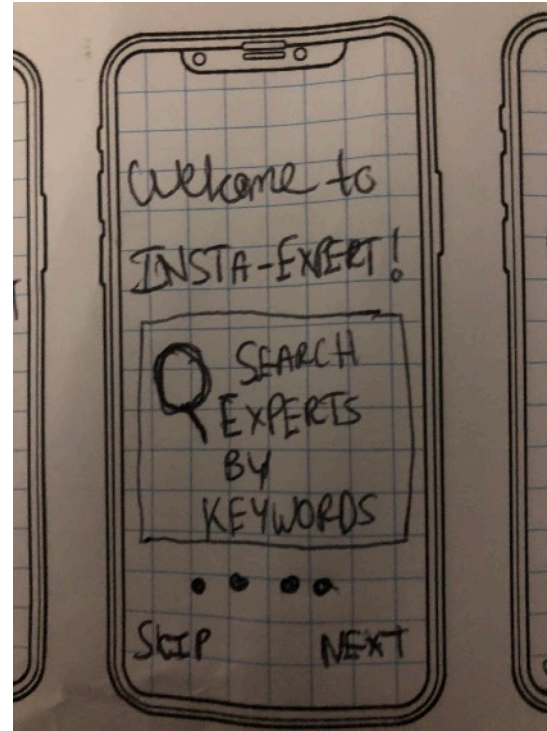 Welcome to
INSTA-EXPERT!
SEARCH
EXPERTS
BY
KEYWORDS
SKIP NEXT